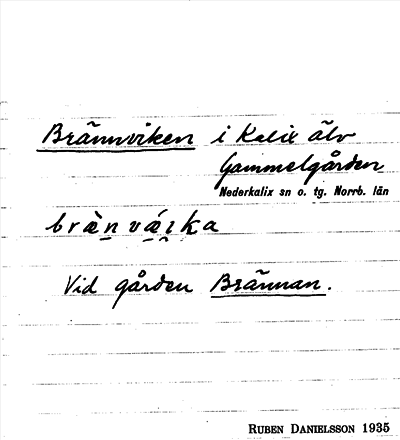 Brännviken i Kalix älv
Gammelgården
Nederkalix sn o. tg. Norrb. län
brä̀n vá̤ɪka
Vid gården Brännan.
RUBEN DANIELSSON 1935